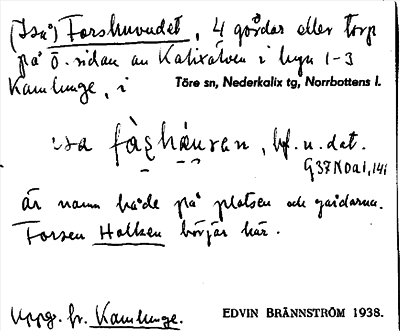 (Isa) Forshuvudet, 4 gårdar eller torp
på ö. sidan av Kalixälven i byn 1-3
Kamlunge, i Töre sn, Nederkalix tg, Norrbottens l.
bf. n. dat.
G37NDa1,141
är namn både på platsen och gårdarna.
Forsen Holken börjar här.
Uppg. fr. Kamlunge. EDVIN BRÄNNSTRÖM 1938.